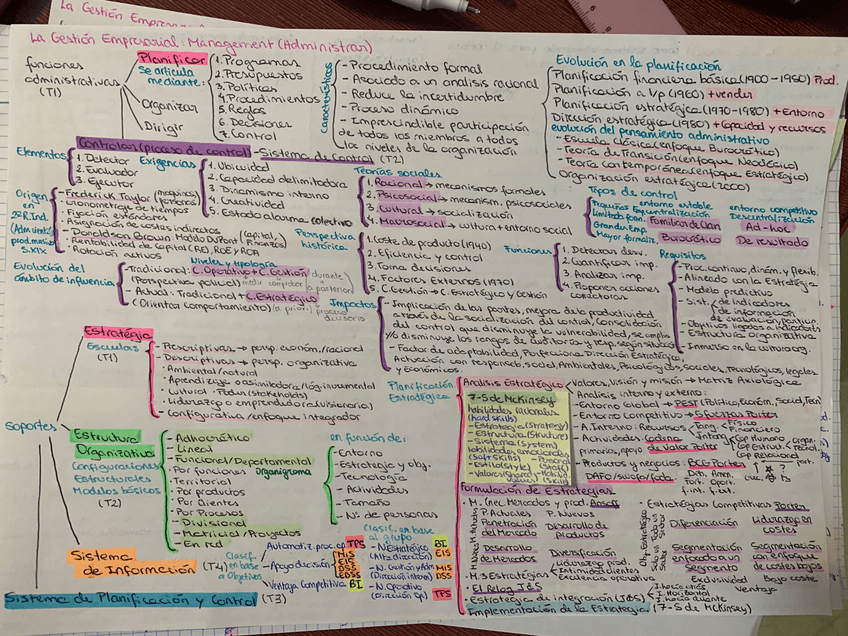 La Gestión Empresarial: Management (Administrar)
funciones administrativas (T1)
Planificar
se articula mediante:
Organizar
Dirigir
1. Programas
2. Presupuestos
3. Políticas
4. Procedimientos
5. Reglas
6. Decisiones
7. Control
Características
- Procedimiento formal
- Asociado a un analisis racional
- Reduce la incertidumbre
- Proceso dinámico
- Imprescindible participación
de todos los miembros a todos
los niveles de la organización
Evolución en la planificación
Planificación financiera básica (1900-1950) Prod.
Planificación a l/p (1960) + vender
Planificación estratégica (1970-1980) + Entorno
Dirección estratégica (1980) + Capacidad y recursos
evolución del pensamiento administrativo
- Escuela Clásica (enfoque Burocrático)
- Teoría de Transición (enfoque Neoclásico)
- Teoría contemporánea (enfoque Estratégico)
Organización estratégica (2000)
Controlar (proceso de control) - Sistema de Control (T2)
Elementos
1. Detector
2. Evaluador
3. Ejecutor
Exigencias
1. Ubicuidad
2. Capacidad delimitadora
3. Dinamismo interno
4. Creatividad
5. Estado alarma colectivo
Teorías sociales
1. Racional → mecanismos formales
2. Psicosocial → mecanism. psicosociales
3. Cultural → socialización
4. Macrosocial → cultura + entorno social
Tipos de control
entorno estable
entorno competitivo
Centralización
Descentralización
Familiar o de Clan
Ad-hoc
Burocrático
De resultado
Origen en 2ª R.Ind.
S.XIX
- Frederick Taylor
cronometraje de tiempos
- Fijación estándares
- Asignación de costes indirectos
- Donaldson Brown Modelo DuPont (capital, Finanzas)
- Rentabilidad de Capital, ROI, ROE y ROA
- Rotación activos
Perspectiva histórica
1. Coste de producto (1940)
2. Eficiencia y control
3. Toma decisiones
4. Factores Externos (1970)
5. Cisección → C. Estratégico y Gestión
Funciones
1. Detectar desv.
2. Cuantificar imp.
3. Analizar imp.
4. Proponer acciones correctoras
Requisitos
- Proc. continuo, dinám. y flexib.
- Alineado con la Estrategia
- Modelo predictivo
- Sist. de indicadores
de información
- Objetivos ligados a indicadores
Estructura organizativa
- Inmerso en la cultura org.
Niveles y tipología
Evolución del ámbito de influencia
- Tradicional: C. Operativo + C. Gestión
(Perspectiva policial)
- Actual: Tradicional + C. Estratégico
(Orientar comportamiento) (a priori)
Impactos
- Implicación de las partes, mejora de la productividad
a través de la socialización del control, Consolidación
del control que disminuye la vulnerabilidad, se amplía
y/o disminuye los rangos de auditoría y resp. según situac.
- Factor de adaptabilidad, Perfecciona Dirección Estratégica,
Actuación con responsab. social, Ambientales, Psicológicos, Sociales, Tecnológicos, legales
y económicos.
Soportes
Estrategia
Escuelas (T1)
- Prescriptivas → persp. económ./racional
- Descriptivas → persp. organizativa
· Ambiental/natural
· Aprendizaje o asimiladora/lóg. incremental
· Cultural · Poder (stakeholds)
· Liderazgo o emprendedora/visionaria)
· Configurativa/enfoque integrador
Planificación Estratégica
Análisis Estratégico
7-S de McKinsey
habilidades racionales
(hard skills)
- Estrategia (Strategy)
- Estructura (Structure)
- Sistemas (System)
habilidades emocionales
(Soft skills)
- Estilo (Style)
- Valores, Visión y misión → Matriz Axiológica
- Analisis interno y externo:
- Entorno Global → PEST (Político, Económ., Social, Tecn)
- Entorno Competitivo → 5 fuerzas Porter
- A. Interno: Recursos
Tang.
Físico
Financiero
Intang.
Cap Humano
Cap Relacional
- Actividades: cadena
primarias, apoyo de Valor Porter
- Productos y negocios: BCG Porter
- DAFO/swofor/foda
Deb. Amen.
Fort. Oport.
f. int. f. ext.
Estructura Organizativa
Configuraciones Estructurales
Modelos básicos (T2)
- Adhocrático
- Lineal
- Funcional/Departamental
Organigrama
· Por funciones
· Territorial
· Por productos
· Por clientes
· Por Procesos
- Divisional
- Matricial/Proyectos
- En red
en función de:
- Entorno
- Estrategia y obj.
- Tecnología
- Actividades
- Tamaño
- Nº de personas
Formulación de Estrategias
- M. Crec. Mercados y prod. Ansoff
P. Actuales
P. Nuevos
Penetración del Mercado
Desarrollo de productos
Desarrollo de Mercados
Diversificación
- M. 3 Estrategias
Liderazgo prod.
Intimidad clientes
Excelencia operativa
- El Reloj J&S
- Estrategia de integración (J&S)
I. Horizontal
- Estrategias Competitivas Porter
Diferenciación
Liderazgo en costes
Segmentación enfocado a un Segmento
Segmentación con enfoque de costes bajos
Exclusividad
Bajo coste
Ventaja
Implementación de la Estrategia (7-S de McKinsey)
Sistema de Información (T4)
Clasif. en base a Objetivos
- Automatiz. proc. op TPS
- Apoyo decisión
MIS
EIS
DSS
GDSS
EDSS
- Ventaja Competitiva BI
Clasific. en base al grupo
- N. Estratégico (Alta dirección)
BI
EIS
- N. Gestión y Adm (Dirección interm)
MIS
DSS
- N. Operativo (Dirección op.)
TPS
Sistema de Planificación y Control (T3)